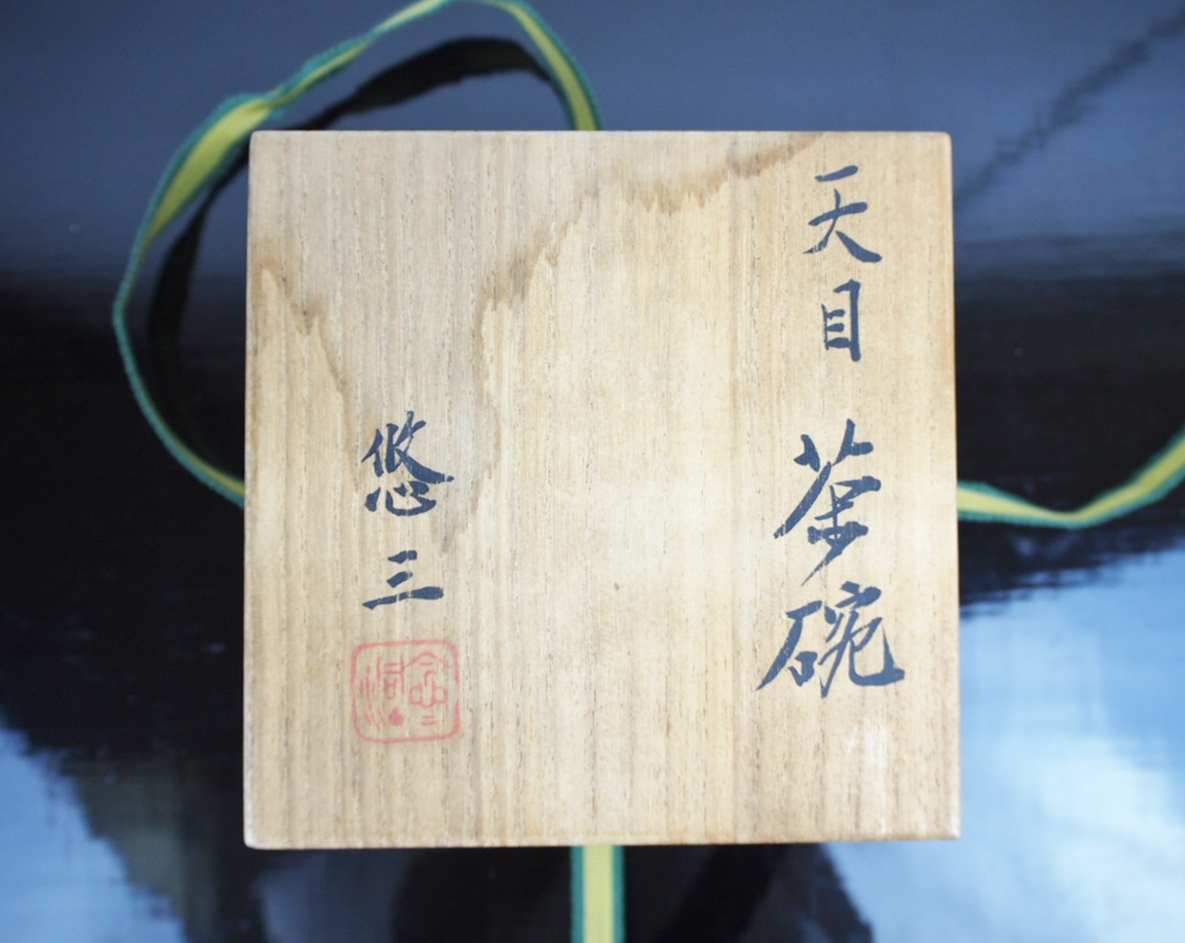 天目茶碗
悠三